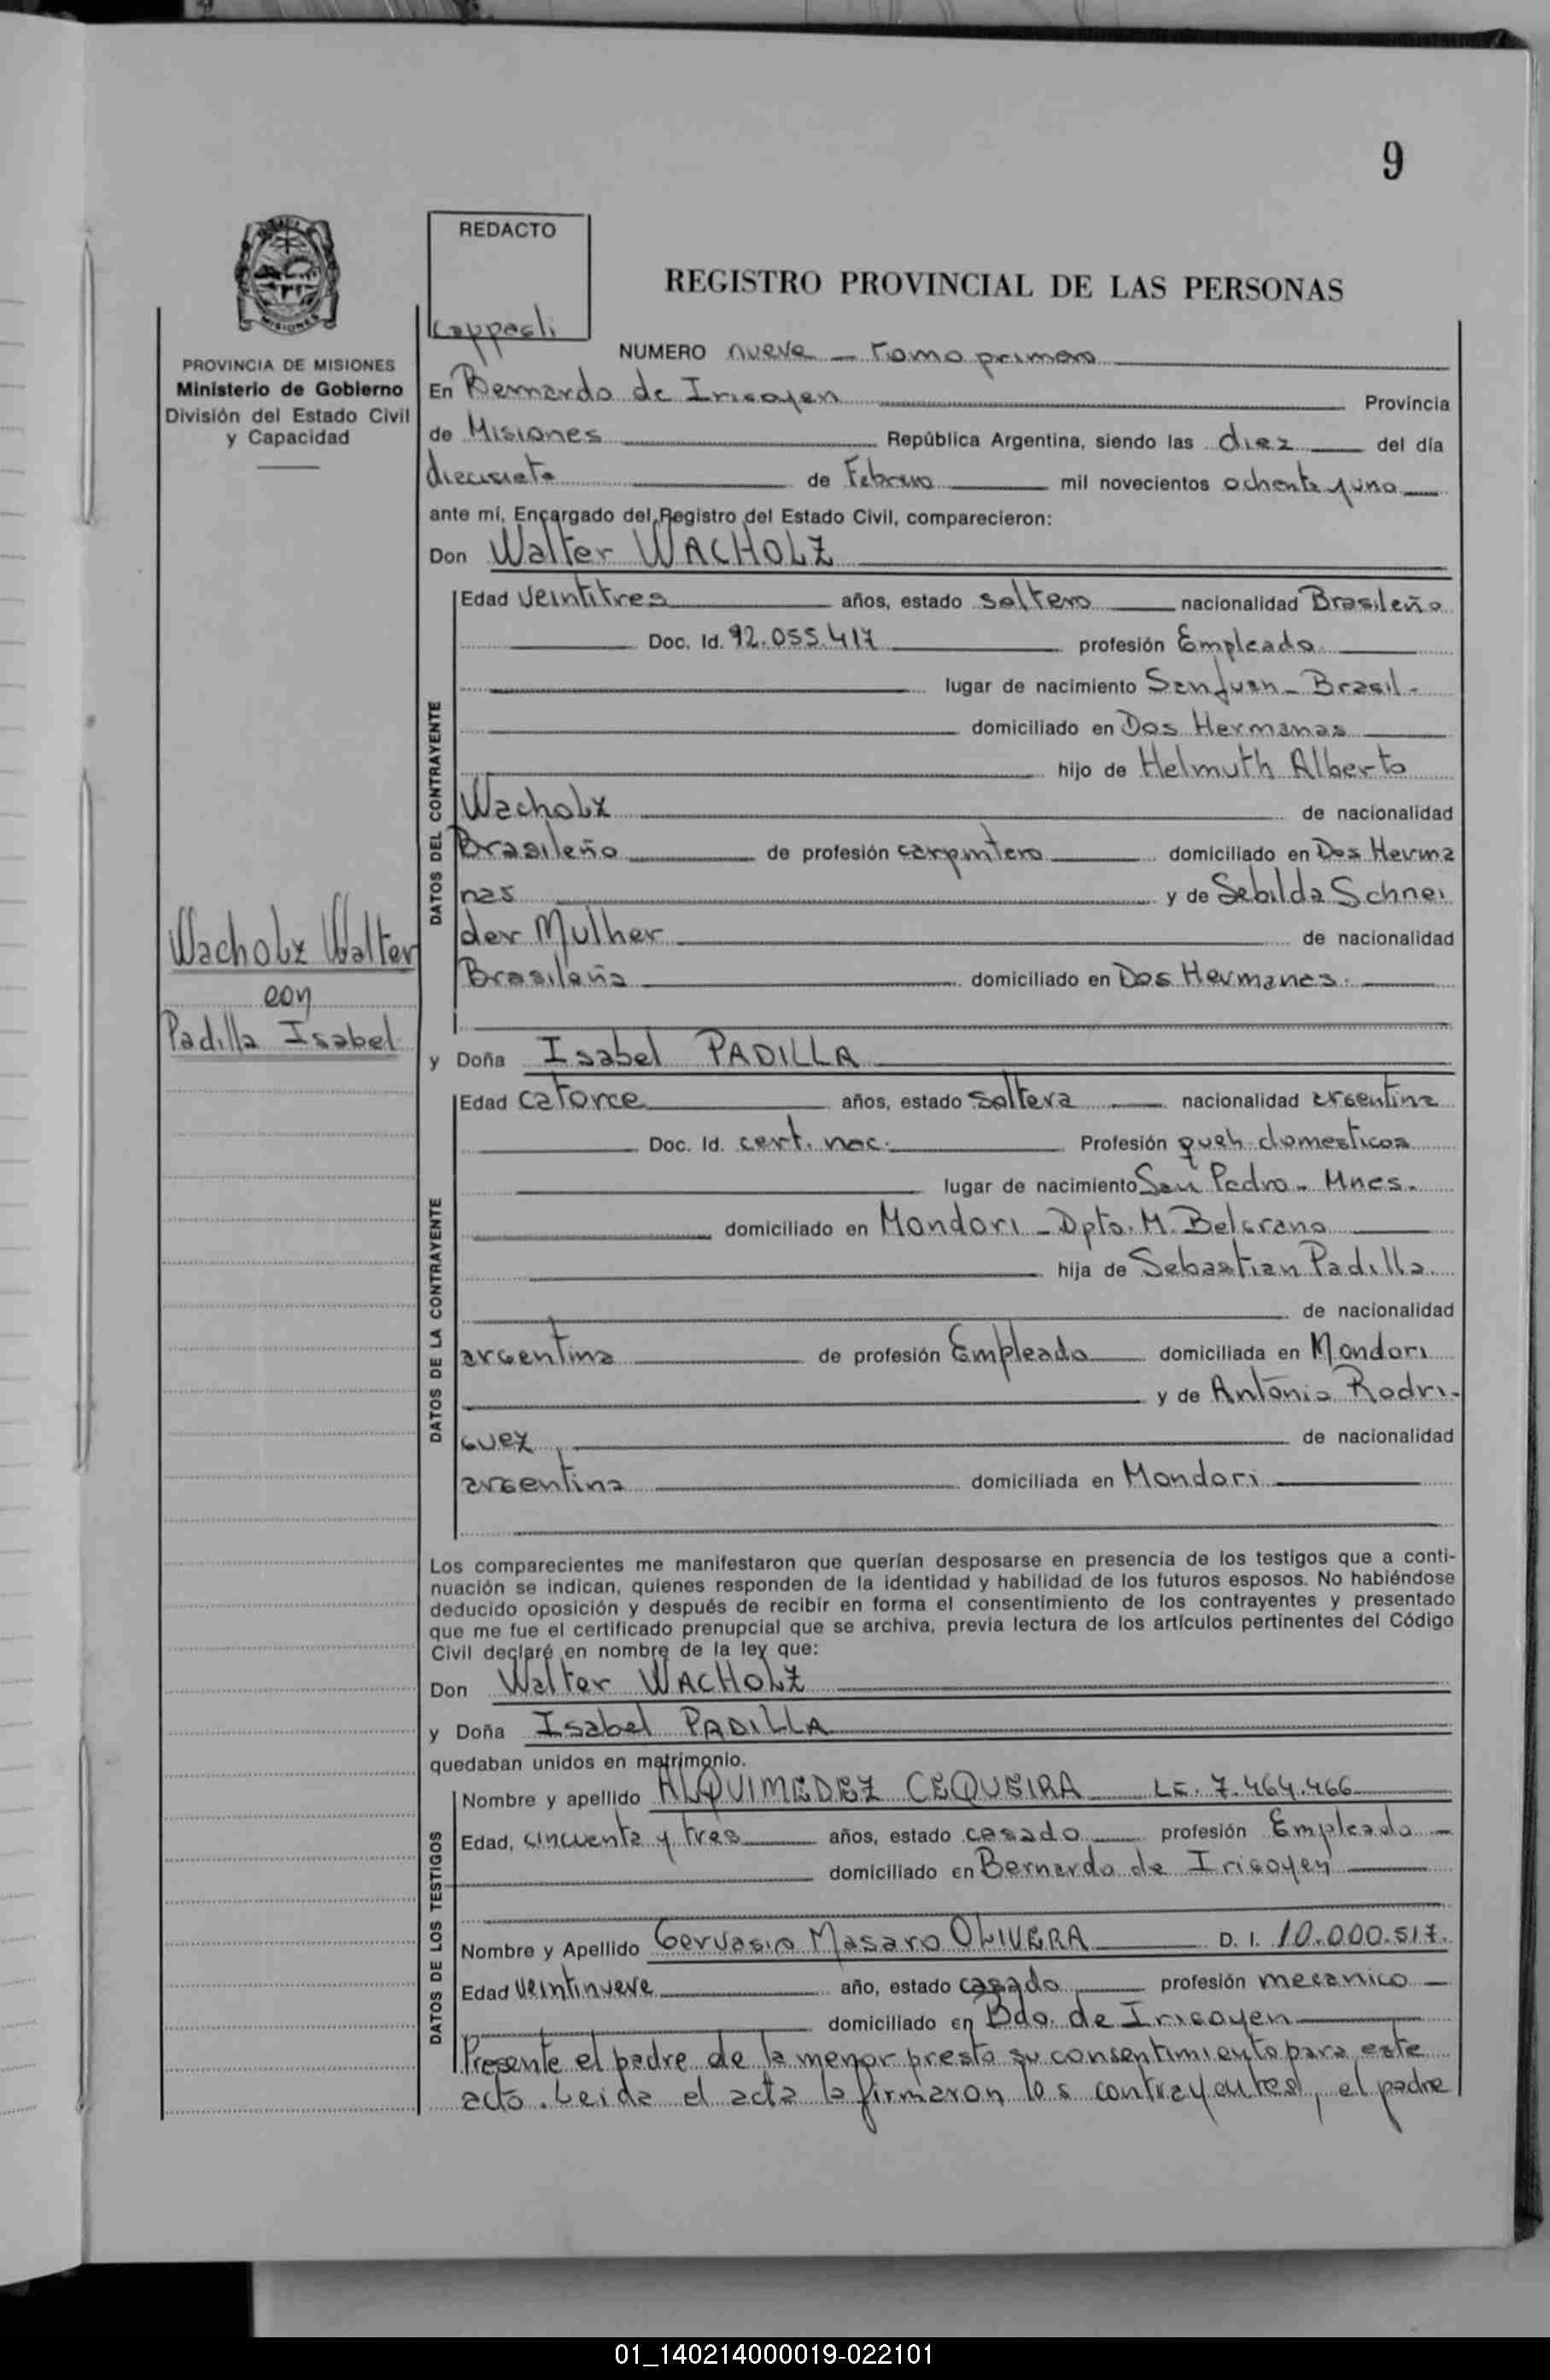 9
REDACTO
REGISTRO PROVINCIAL DE LAS PERSONAS
MISIONES
PROVINCIA DE MISIONES
Ministerio de Gobierno
División del Estado Civil
y Capacidad
NUMERO nueve - Tomo primero
En Bernardo de Irigoyen Provincia
de Misiones República Argentina, siendo las diez del día
diecisiete de Febrero mil novecientos ochenta y uno
ante mí, Encargado del Registro del Estado Civil, comparecieron:
Don Walter WACHOLZ
DATOS DEL CONTRAYENTE
Edad Veintitres años, estado soltero nacionalidad Brasileño
Doc. Id. 92.055.417 profesión Empleado
lugar de nacimiento San Juan - Brasil -
domiciliado en Dos Hermanas
hijo de Helmuth Alberto
Wacholz de nacionalidad
Brasileño de profesión carpintero domiciliado en Dos Herma
nas y de Sebilda Schnei
der Mulher de nacionalidad
Brasileña domiciliado en Dos Hermanas.
Wacholz Walter
con
Padilla Isabel
y Doña Isabel PADILLA
DATOS DE LA CONTRAYENTE
Edad catorce años, estado soltera nacionalidad argentina
Doc. Id. cert. nac. Profesión queh domesticos
lugar de nacimiento San Pedro - Mnes.
domiciliado en Mondori - Dpto. M. Belgrano
hija de Sebastian Padilla
de nacionalidad
argentina de profesión Empleado domiciliada en Mondori
y de Antonia Rodri-
guez de nacionalidad
argentina domiciliada en Mondori
Los comparecientes me manifestaron que querían desposarse en presencia de los testigos que a conti-
nuación se indican, quienes responden de la identidad y habilidad de los futuros esposos. No habiéndose
deducido oposición y después de recibir en forma el consentimiento de los contrayentes y presentado
que me fue el certificado prenupcial que se archiva, previa lectura de los artículos pertinentes del Código
Civil declaré en nombre de la ley que:
Don Walter WACHOLZ
y Doña Isabel PADILLA
quedaban unidos en matrimonio.
DATOS DE LOS TESTIGOS
Nombre y apellido ALQUIMEDEZ CEQUEIRA LE. 7.464.466
Edad, cincuenta y tres años, estado casado profesión Empleado -
domiciliado en Bernardo de Irigoyen
Nombre y Apellido Gervasio Masaro OLIVERA D. I. 10.000.517.
Edad Veintinueve año, estado casado profesión mecanico -
domiciliado en Bdo. de Irigoyen
Presente el padre de la menor presta su consentimiento para este
acto. Leida el acta la firmaron los contrayentes, el padre
01_140214000019-022101